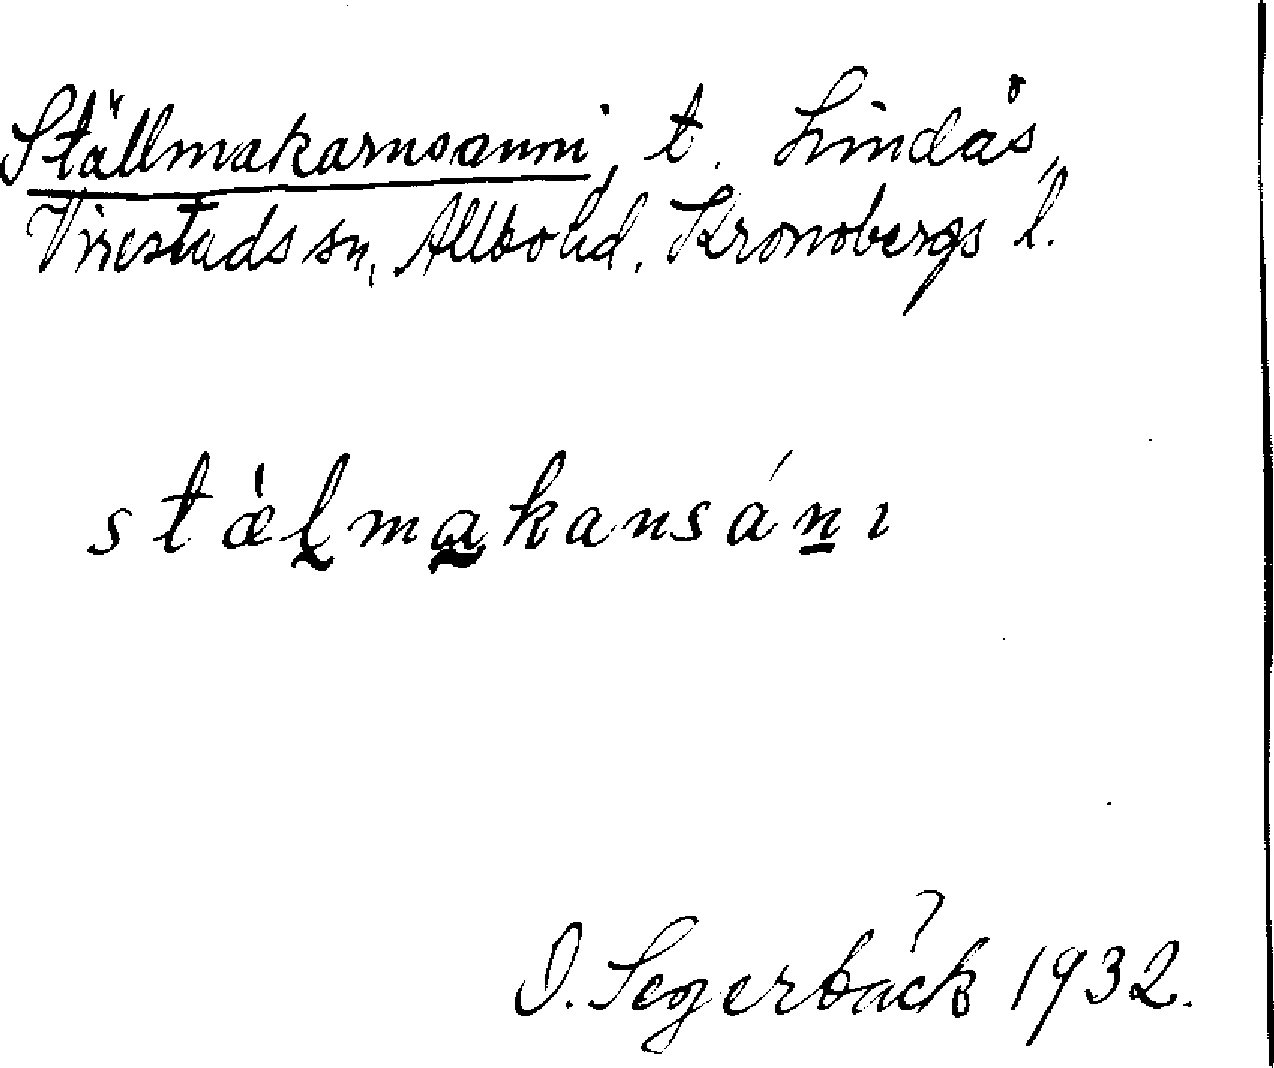 Ställmakarnsanni, t. Lindås,
Virestads sn, Allbo hd, Kronobergs l.
stælmakansánı
O. Segerbäck 1932.